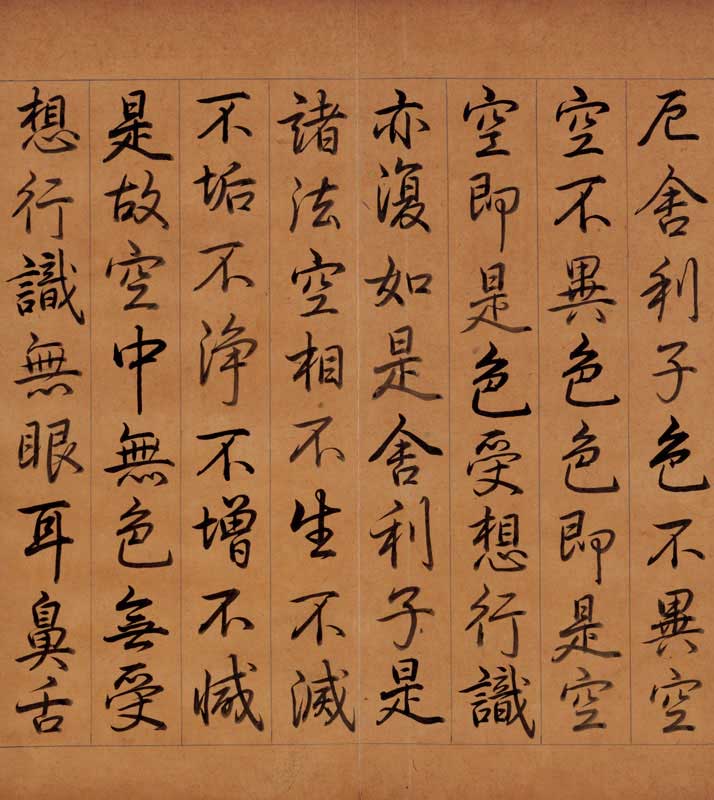 厄舍利子色不異空
空不異色色即是空
空即是色受想行識
亦復如是舍利子是
諸法空相不生不滅
不垢不淨不增不減
是故空中無色無受
想行識無眼耳鼻舌